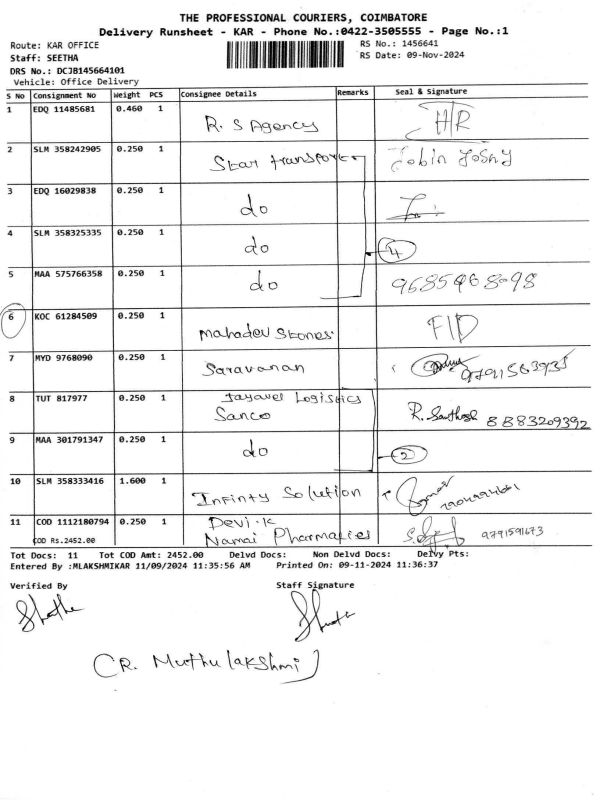 THE PROFESSIONAL COURIERS, COIMBATORE
Delivery Runsheet - KAR - Phone No.:0422-3505555 - Page No.:1
Route: KAR OFFICE
RS No.: 1456641
Staff: SEETHA
RS Date: 09-Nov-2024
DRS No.: DCJB145664101
Vehicle: Office Delivery
S No Consignment No Weight PCS Consignee Details Remarks Seal & Signature
1 EDQ 11485681 0.460 1 R. S Agency
2 SLM 358242905 0.250 1 Star transport Jobin Joshy
3 EDQ 16029838 0.250 1 do
4 SLM 358325335 0.250 1 do 4
5 MAA 575766358 0.250 1 do
6 KOC 61284509 0.250 1 Mahadev Stones FID
7 MYD 9768090 0.250 1 Saravanan
8 TUT 817977 0.250 1 Jayavel Logistics
Sanco R. Santhosh 8883209392
9 MAA 301791347 0.250 1 do 2
10 SLM 358333416 1.600 1 Infinty Solution
11 COD 1112180794 0.250 1 Devi.K
COD Rs.2452.00 Namai Pharmacies 9791591673
Tot Docs: 11 Tot COD Amt: 2452.00 Delvd Docs: Non Delvd Docs: Delvy Pts:
Entered By :MLAKSHMIKAR 11/09/2024 11:35:56 AM Printed On: 09-11-2024 11:36:37
Verified By Staff Signature
(R. Muthulakshmi)